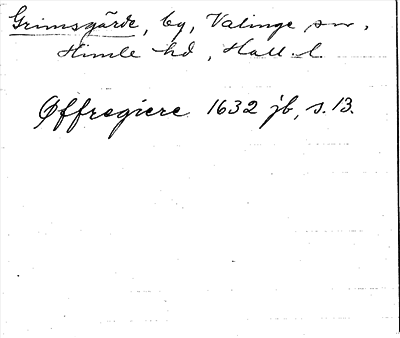 Grimsgärde, by, Valinge sn,
Himle hd, Hall. l.
Øffregiere 1632 jb, s. 13.